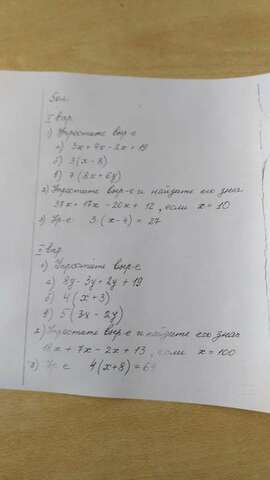 I вар
1) Упростите выр-е
а) 3x + 4x - 2x + 19
б) 3(x - 8)
в) 7(8x + 6y)
2) Упростите выр-е и найдите его знач
37x + 17x - 20x + 12, если x = 10
3) Ур-е 3·(x - 4) = 27
II вар
1) Упростите выр-е
а) 8y - 3y + 2y + 19
б) 4(x + 3)
в) 5(3x - 2y)
2) Упростите выр-е и найдите его знач
18x + 7x - 2x + 13, если x = 100
3) Ур-е 4(x + 8) = 64